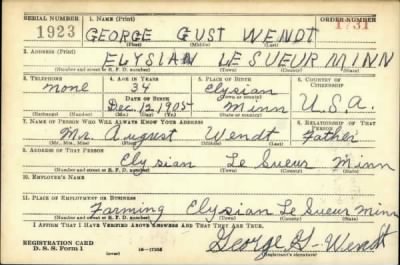 SERIAL NUMBER 1. NAME (Print) ORDER NUMBER
1923 GEORGE GUST WENDT 1731
(First) (Middle) (Last)
2. ADDRESS (Print)
ELYSIAN LE SUEUR MINN
(Number and street or R. F. D. number) (Town) (County) (State)
3. TELEPHONE 4. AGE IN YEARS 5. PLACE OF BIRTH 6. COUNTRY OF CITIZENSHIP
None 34 Elysian
DATE OF BIRTH (Town or county)
Dec. 12, 1905 Minn U.S.A.
(Exchange) (Number) (Mo.) (Day) (Yr.) (State or country)
7. NAME OF PERSON WHO WILL ALWAYS KNOW YOUR ADDRESS 8. RELATIONSHIP OF THAT PERSON
Mr. August Wendt Father
(Mr., Mrs., Miss) (First) (Middle) (Last)
9. ADDRESS OF THAT PERSON
Elysian Le Sueur Minn
(Number and street or R. F. D. number) (Town) (County) (State)
10. EMPLOYER'S NAME
11. PLACE OF EMPLOYMENT OR BUSINESS
Farming Elysian Le Sueur Minn
(Number and street or R. F. D. number) (Town) (County) (State)
I AFFIRM THAT I HAVE VERIFIED ABOVE ANSWERS AND THAT THEY ARE TRUE.
REGISTRATION CARD George G-Wendt
D. S. S. Form 1 (over) (Registrant's signature)